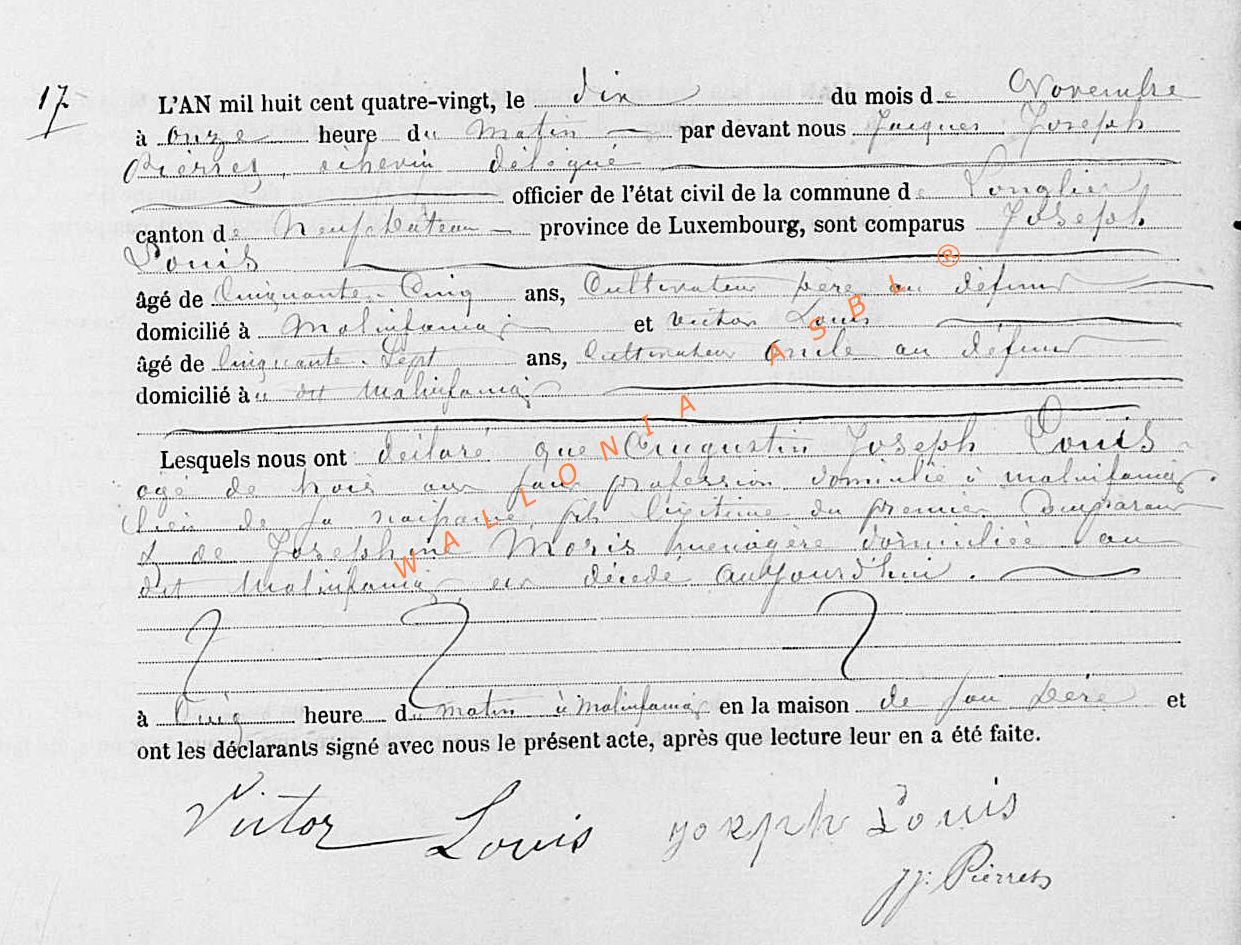 17
L'AN mil huit cent quatre-vingt, le dix du mois de Novembre
à onze heure du Matin par devant nous Jacques Joseph
Pierret, échevin délégué
officier de l'état civil de la commune de Longlier
canton de Neufchâteau province de Luxembourg, sont comparus Joseph
Louis
âgé de Cinquante-Cinq ans, Cultivateur père au défunt
domicilié à Molinfaing et Victor Louis
âgé de Cinquante-Sept ans, Cultivateur Oncle au défunt
domicilié à u dit Molinfaing
Lesquels nous ont déclaré que Augustin Joseph Louis
agé de trois ans sans profession domicilié à molinfaing
lieu de sa naissance, fils légitime du premier Comparant
& de Josephine Moris ménagère domiciliée au
dit Molinfaing, est décédé aujourd'hui.
à Cinq heure du matin à Molinfaing en la maison de son père et
ont les déclarants signé avec nous le présent acte, après que lecture leur en a été faite.
Victor Louis Joseph Louis
JJ. Pierret
WALLONIA ASBL ®